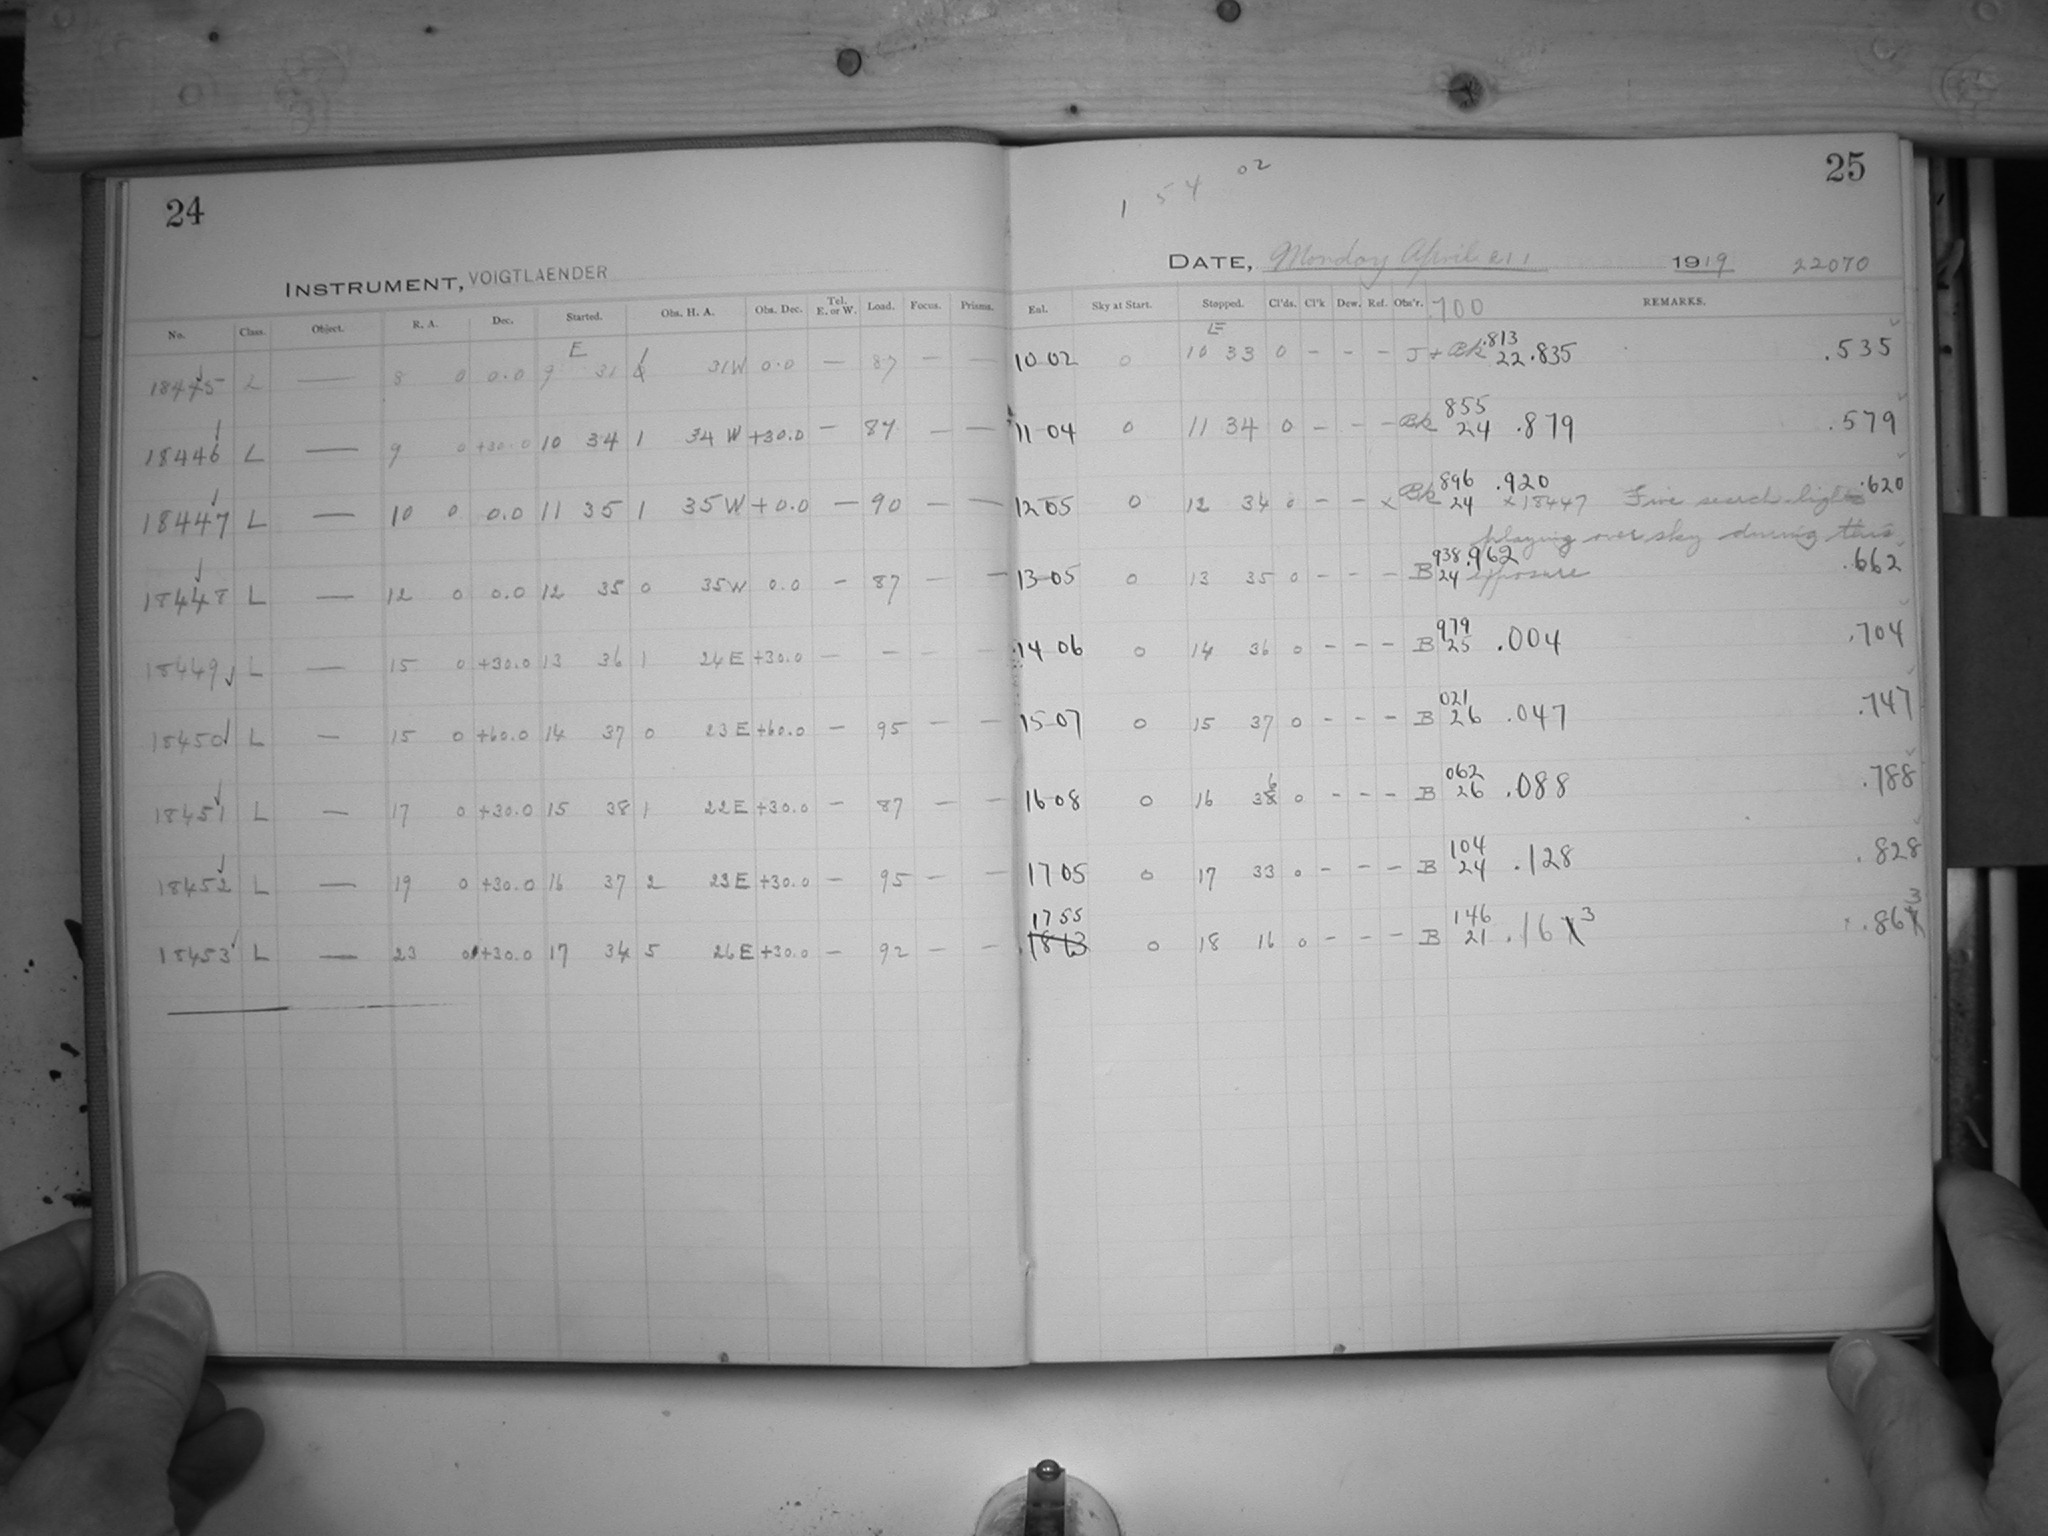 24
INSTRUMENT, VOIGTLAENDER
No. Class. Object. R. A. Dec. Started. Obs. H. A. Obs. Dec. Tel. E. or W. Load. Focus. Prisms.
E
18445 L — 8 0 0.0 9 31 1 31W 0.0 — 87 — —
18446 L — 9 0 +30.0 10 34 1 34 W +30.0 — 87 — —
18447 L — 10 0 0.0 11 35 1 35W +0.0 — 90 — —
18448 L — 12 0 0.0 12 35 0 35W 0.0 — 87 — —
18449 L — 15 0 +30.0 13 36 1 24E +30.0 — — — —
18450 L — 15 0 +60.0 14 37 0 23E +60.0 — 95 — —
18451 L — 17 0 +30.0 15 38 1 22E +30.0 — 87 — —
18452 L — 19 0 +30.0 16 37 2 23E +30.0 — 95 — —
18453 L — 23 0 +30.0 17 34 5 26E +30.0 — 92 — —
25
1 54 02
DATE, Monday April 1919 22070
Eal. Sky at Start. Stopped. Cl'ds. Cl'k Dew. Ref. Obs'r. .700 REMARKS.
E
.813
10 02 0 10 33 0 - - - J + Bk 22 .835 .535
855
11 04 0 11 34 0 - - - Bk 24 .879 .579
896 .920
12 05 0 12 34 0 - - x Bk 24 x18447 Five search lights .620
playing over sky during this
938 .962
13 05 0 13 35 0 - - - B 24 exposure .662
979
14 06 0 14 36 0 - - - B 25 .004 .704
021
15 07 0 15 37 0 - - - B 26 .047 .747
062
16 08 0 16 36 0 - - - B 26 .088 .788
104
17 05 0 17 33 0 - - - B 24 .128 .828
17 55 146
1813 0 18 16 0 - - - B 21 .163 .863